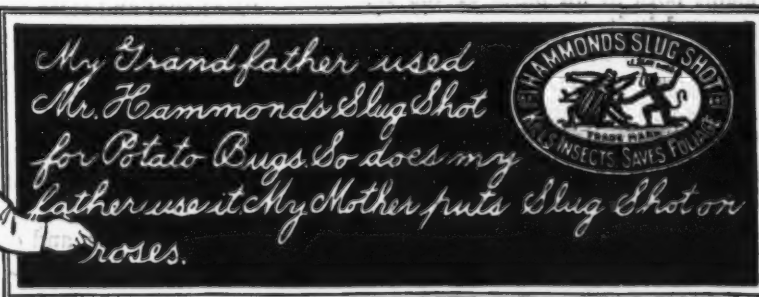 My Grandfather used
Mr. Hammond's Slug Shot
for Potato Bugs. So does my
father use it. My Mother puts Slug Shot on
roses.
HAMMONDS SLUG SHOT
TRADE MARK
KILLS INSECTS SAVES FOLIAGE